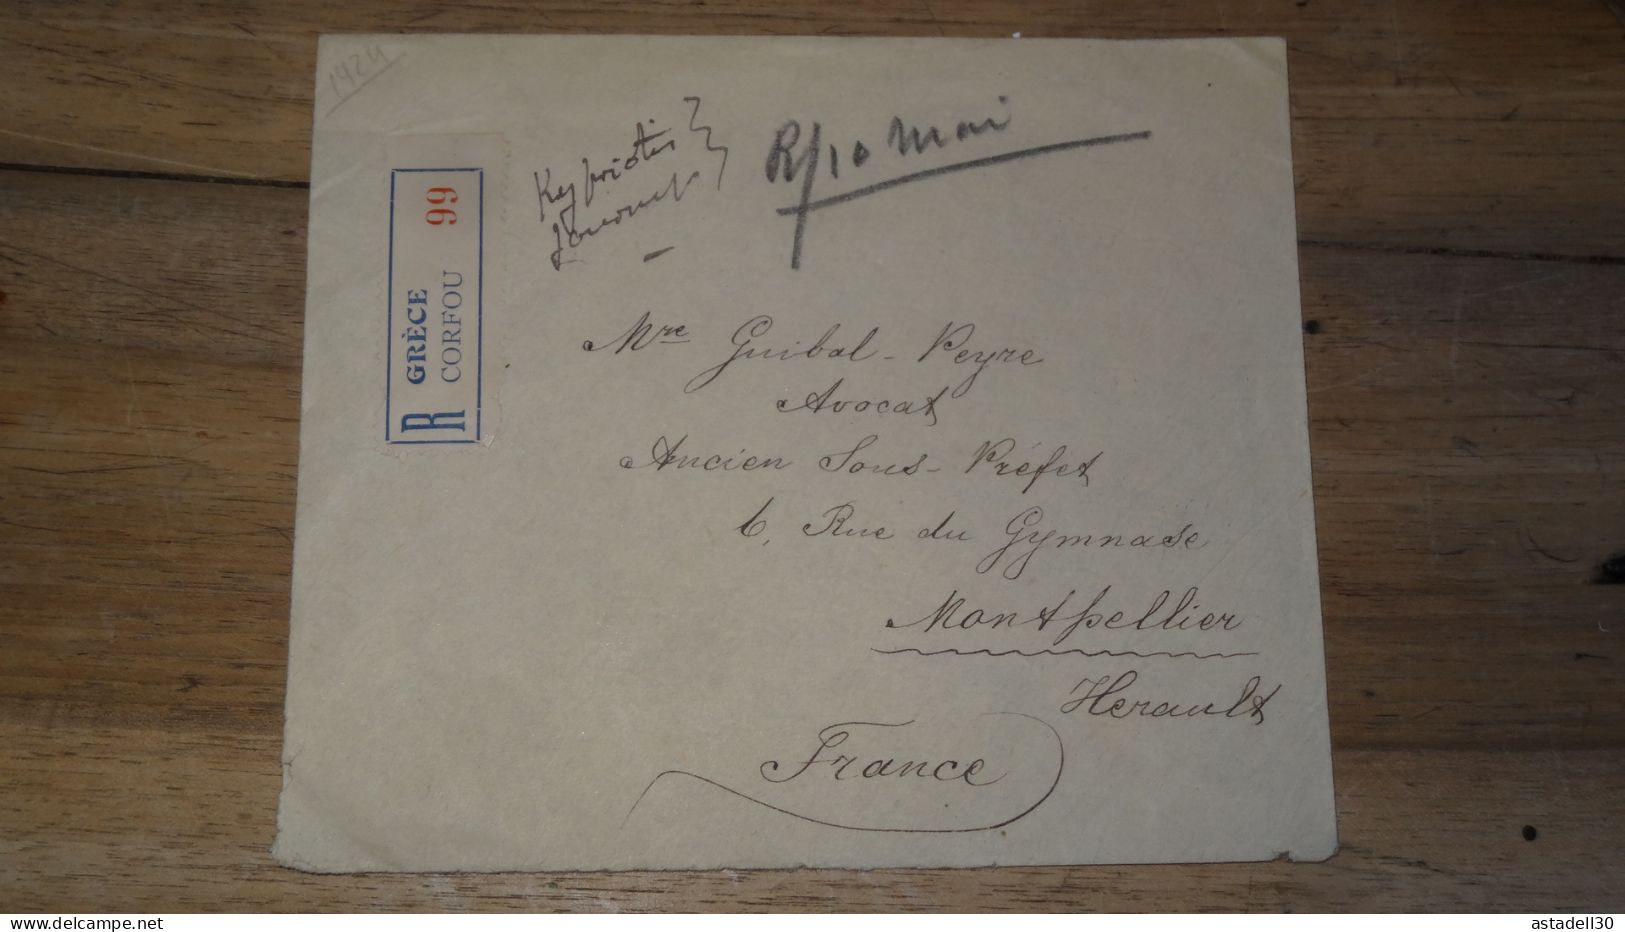 1924
R GRÈCE 99
CORFOU
R/10 Mai
Mre Guibal-Peyre
Avocat
Ancien Sous-Préfet
6, Rue du Gymnase
Montpellier
Herault
France
delcampe.net
astadell30